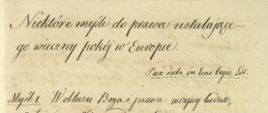 Niektóre myśli do prawa ustalające-
go wieczny pokój w Europie.
Pax data in has leges. Liv.
Myśl 1 W obliczu Boga i prawa wszyscy ludzie,